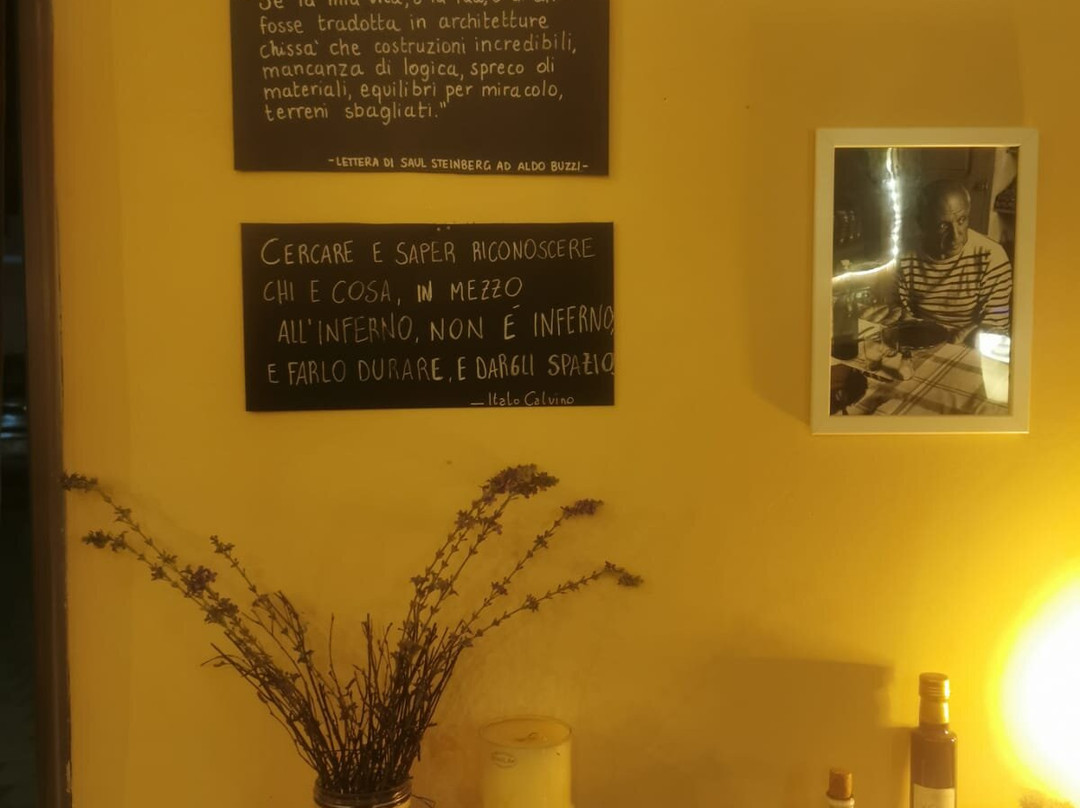 Se la mia vita, o la tua, o di chi
fosse tradotta in architetture
chissa' che costruzioni incredibili,
mancanza di logica, spreco di
materiali, equilibri per miracolo,
terreni sbagliati."
-LETTERA DI SAUL STEINBERG AD ALDO BUZZI-
CERCARE E SAPER RICONOSCERE
CHI E COSA, IN MEZZO
ALL'INFERNO, NON É INFERNO,
E FARLO DURARE, E DARGLI SPAZIO
—Italo Calvino